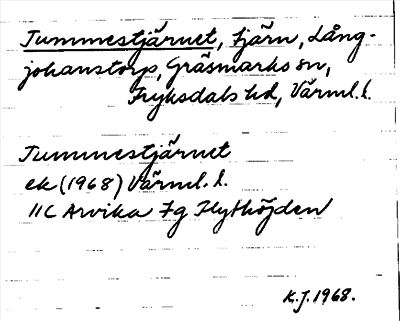 Tummestjärnet, tjärn, Lång-
johanstorp, Gräsmarks sn,
Fryksdals hd, Värml. l.
Tummestjärnet
ek (1968) Värml. l.
11C Arvika 7g Flythöjden
K.J. 1968.